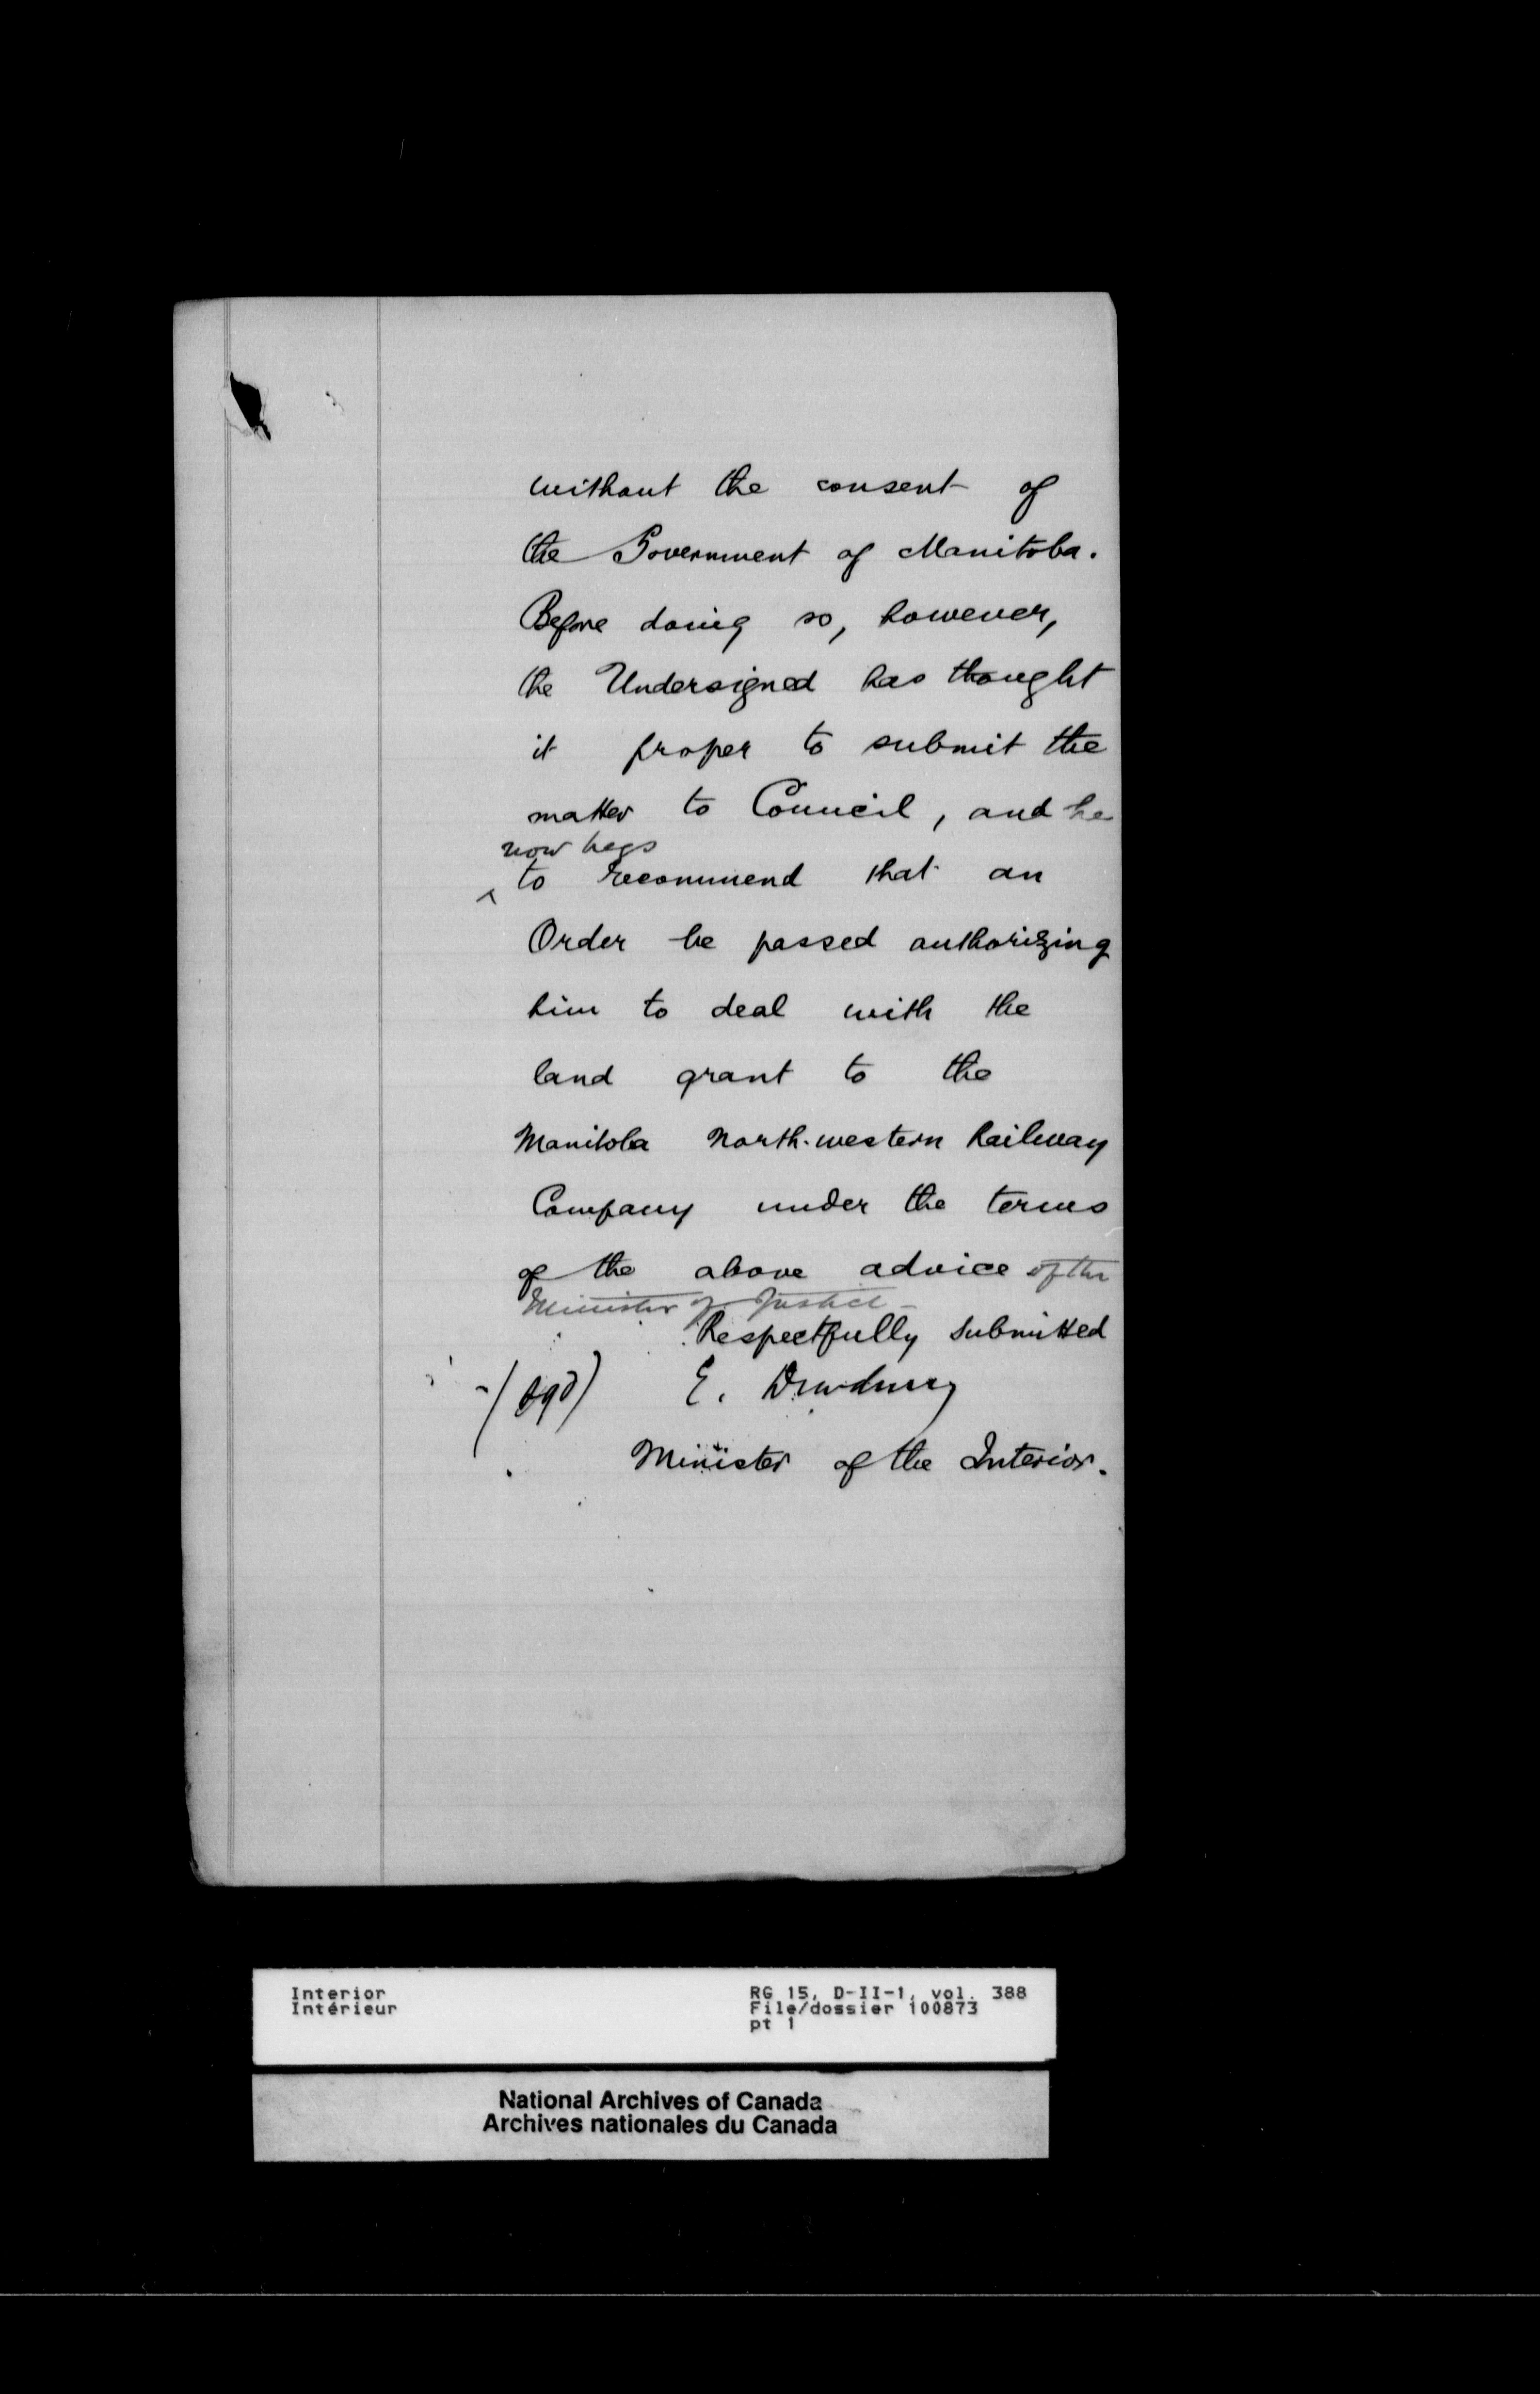 without the consent of
the Government of Manitoba.
Before doing so, however,
the Undersigned has thought
it proper to submit the
matter to Council, and he
now begs
to recommend that an
Order be passed authorizing
him to deal with the
land grant to the
Manitoba North-western Railway
Company under the terms
of the above advice of the
Minister of Justice -
Respectfully submitted
(sgd) E. Dewdney
Minister of the Interior.
Interior
Intérieur
RG 15, D-II-1, vol. 388
File/dossier 100873
pt 1
National Archives of Canada
Archives nationales du Canada